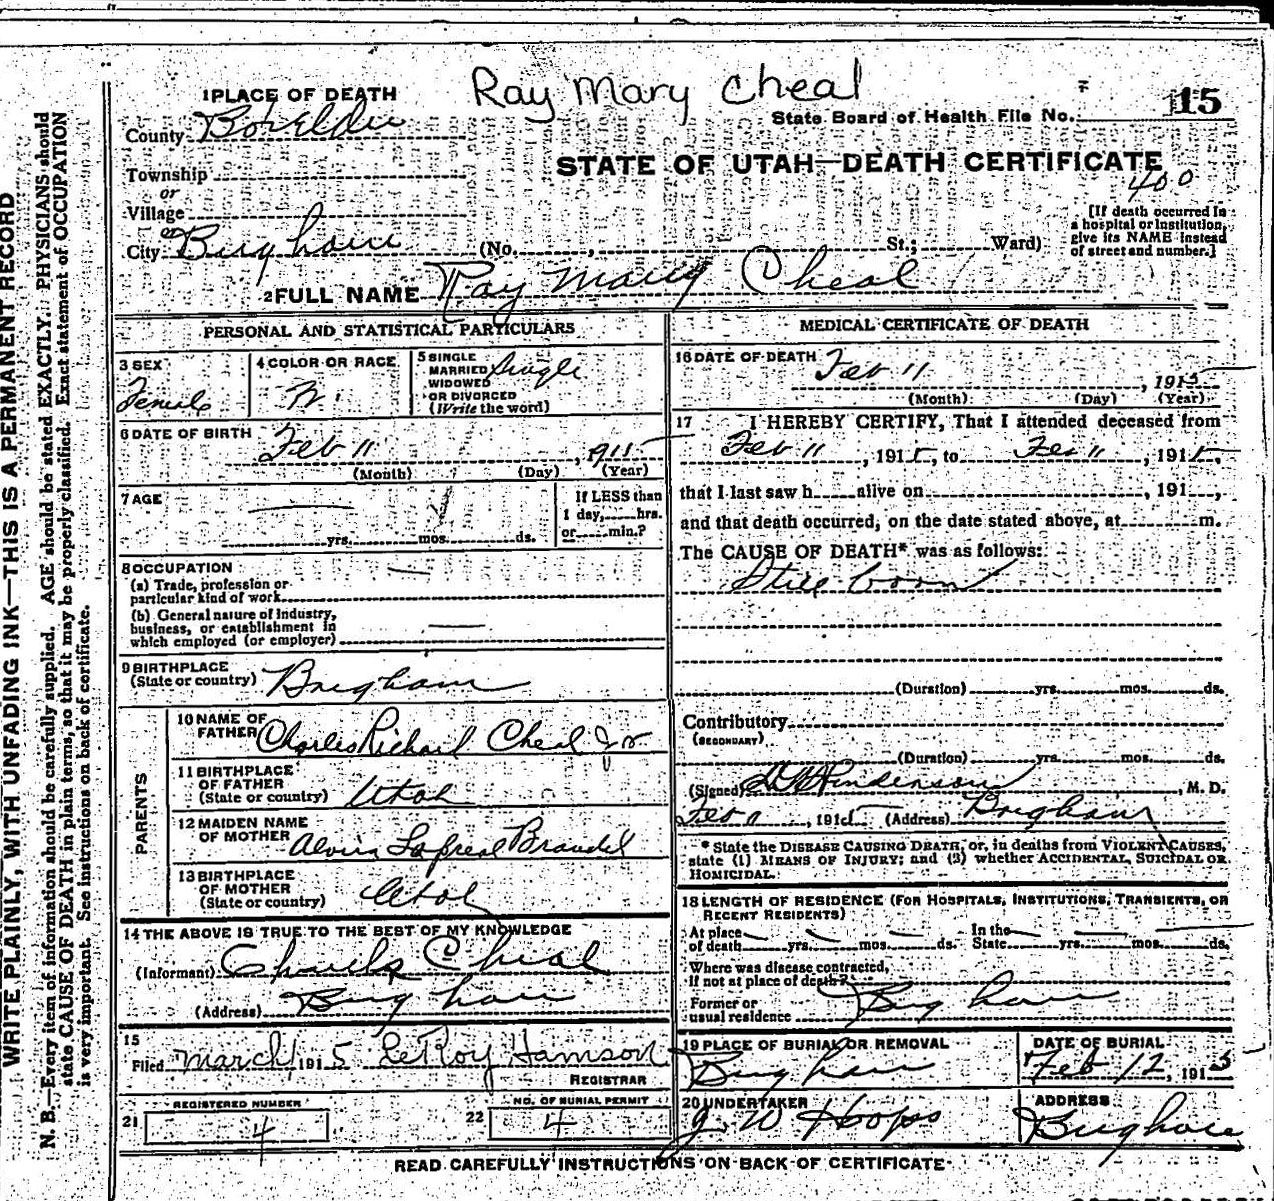 Ray Mary Cheal
1 PLACE OF DEATH
State Board of Health File No. 15
County Box Elder
STATE OF UTAH—DEATH CERTIFICATE
400
Township
or
Village
or
City Brigham (No. , St.; Ward)
[If death occurred in
a hospital or institution,
give its NAME instead
of street and number.]
2 FULL NAME Ray Mary Cheal
WRITE PLAINLY, WITH UNFADING INK—THIS IS A PERMANENT RECORD
N. B.—Every item of information should be carefully supplied. AGE should be stated EXACTLY. PHYSICIANS should
state CAUSE OF DEATH in plain terms, so that it may be properly classified. Exact statement of OCCUPATION
is very important. See instructions on back of certificate.
PERSONAL AND STATISTICAL PARTICULARS
3 SEX
Female
4 COLOR OR RACE
W.
5 SINGLE
MARRIED
WIDOWED
OR DIVORCED
(Write the word)
Single
6 DATE OF BIRTH
Feb 11, 1915
(Month) (Day) (Year)
7 AGE
yrs. mos. ds.
If LESS than
1 day, hrs.
or min.?
8 OCCUPATION
(a) Trade, profession or
particular kind of work
(b) General nature of industry,
business, or establishment in
which employed (or employer)
9 BIRTHPLACE
(State or country) Brigham
PARENTS
10 NAME OF
FATHER Charles Richard Cheal Jr
11 BIRTHPLACE
OF FATHER
(State or country) Utah
12 MAIDEN NAME
OF MOTHER Alvira Braudel
13 BIRTHPLACE
OF MOTHER
(State or country) Utah
14 THE ABOVE IS TRUE TO THE BEST OF MY KNOWLEDGE
(Informant) Charles Cheal
(Address) Brigham
15
Filed march 1, 1915 LeRoy Hamson
REGISTRAR
REGISTERED NUMBER
21 4
NO. OF BURIAL PERMIT
22 4
MEDICAL CERTIFICATE OF DEATH
16 DATE OF DEATH Feb 11
, 1915
(Month) (Day) (Year)
17 I HEREBY CERTIFY, That I attended deceased from
Feb 11, 1915, to Feb 11, 1915,
that I last saw h alive on , 191 ,
and that death occurred, on the date stated above, at m.
The CAUSE OF DEATH* was as follows:
Still born
(Duration) yrs. mos. ds.
Contributory
(SECONDARY)
(Duration) yrs. mos. ds.
(Signed) Henderson, M. D.
Feb 11, 1915 (Address) Brigham
* State the DISEASE CAUSING DEATH, or, in deaths from VIOLENT CAUSES,
state (1) MEANS OF INJURY; and (2) whether ACCIDENTAL, SUICIDAL OR
HOMICIDAL.
18 LENGTH OF RESIDENCE (FOR HOSPITALS, INSTITUTIONS, TRANSIENTS, OR
RECENT RESIDENTS)
At place
of death yrs. mos. ds.
In the
State yrs. mos. ds.
Where was disease contracted,
if not at place of death?
Former or
usual residence Brigham
19 PLACE OF BURIAL OR REMOVAL
Brigham
DATE OF BURIAL
Feb 12, 1915
20 UNDERTAKER
J. W Hoops
ADDRESS
Brigham
READ CAREFULLY INSTRUCTIONS ON BACK OF CERTIFICATE